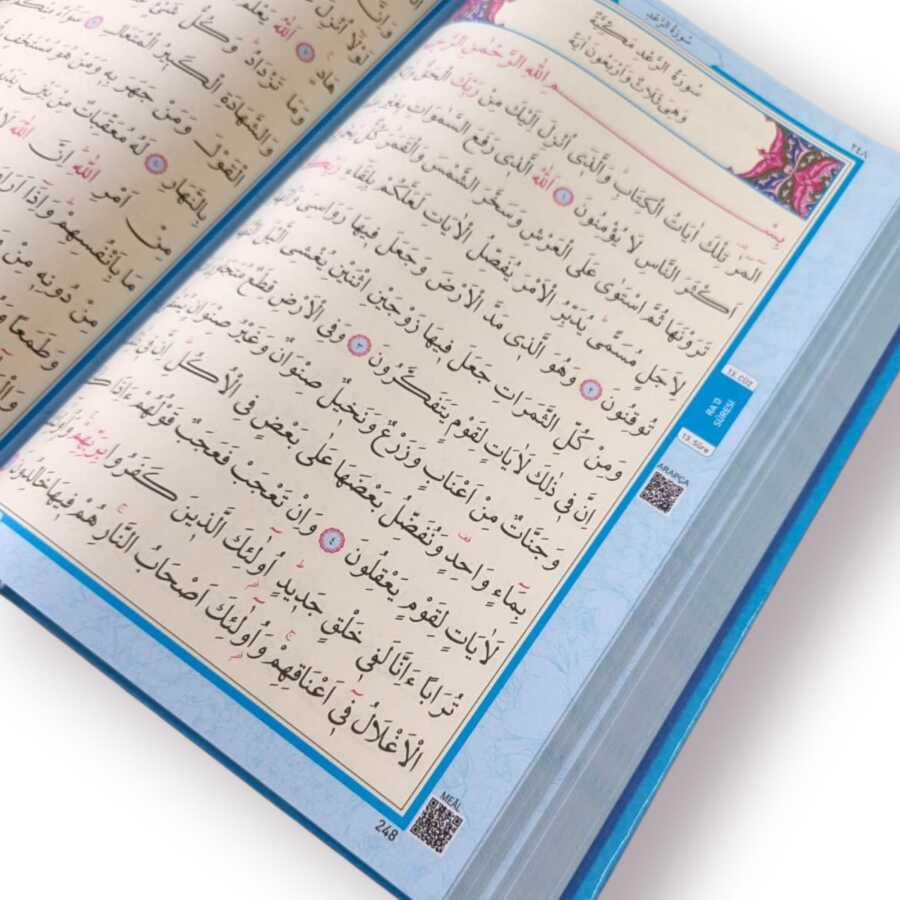 سُورَةُ الرَّعْدِ
٢٤٨
سُورَةُ الرَّعْدِ مَكِّيَّةٌ
وَهِىَ ثَلَاثٌ وَاَرْبَعُونَ اٰيَةً
بِسْمِ اللّٰهِ الرَّحْمٰنِ
الٓمٓرٰ تِلْكَ اٰيَاتُ الْكِتَابِ وَالَّذٖٓى اُنْزِلَ اِلَيْكَ مِنْ رَبِّكَ الْحَقُّ
اَكْثَرَ النَّاسِ لَا يُؤْمِنُونَ ١ اَللّٰهُ الَّذٖى رَفَعَ السَّمٰوَاتِ بِغَيْرِ
تَرَوْنَهَا ثُمَّ اسْتَوٰى عَلَى الْعَرْشِ وَسَخَّرَ الشَّمْسَ وَالْقَمَرَ كُلٌّ
لِاَجَلٍ مُسَمًّى يُدَبِّرُ الْاَمْرَ يُفَصِّلُ الْاٰيَاتِ لَعَلَّكُمْ بِلِقَٓاءِ
تُوقِنُونَ ٢ وَهُوَ الَّذٖى مَدَّ الْاَرْضَ وَجَعَلَ فٖيهَا رَوَاسِىَ
وَمِنْ كُلِّ الثَّمَرَاتِ جَعَلَ فٖيهَا زَوْجَيْنِ اثْنَيْنِ يُغْشِى الَّيْلَ
اِنَّ فٖى ذٰلِكَ لَاٰيَاتٍ لِقَوْمٍ يَتَفَكَّرُونَ ٣ وَفِى الْاَرْضِ قِطَعٌ
وَجَنَّاتٌ مِنْ اَعْنَابٍ وَزَرْعٌ وَنَخٖيلٌ صِنْوَانٌ وَغَيْرُ صِنْوَانٍ
بِمَٓاءٍ وَاحِدٍ وَنُفَضِّلُ بَعْضَهَا عَلٰى بَعْضٍ فِى الْاُكُلِ اِنَّ فٖى
لَاٰيَاتٍ لِقَوْمٍ يَعْقِلُونَ ٤ وَاِنْ تَعْجَبْ فَعَجَبٌ قَوْلُهُمْ ءَاِذَا
تُرَابًا ءَاِنَّا لَفٖى خَلْقٍ جَدٖيدٍ اُولٰٓئِكَ الَّذٖينَ كَفَرُوا بِرَبِّهِمْ
الْاَغْلَالُ فٖٓى اَعْنَاقِهِمْ وَاُولٰٓئِكَ اَصْحَابُ النَّارِ هُمْ فٖيهَا خَالِدُونَ
13. CÜZ
RA'D
SÛRESİ
13. Sûre
ARAPÇA
MEÂL
248
لَوْلَٓا اُنْزِلَ
هَادٍ اَللّٰهُ يَعْلَمُ
وَمَا تَزْدَادُ وَكُلُّ
وَالشَّهَادَةِ الْكَبٖيرُ الْمُتَعَالِ
الْقَوْلَ وَمَنْ جَهَرَ بِهٖ وَمَنْ هُوَ
بِالنَّهَارِ لَهُ مُعَقِّبَاتٌ مِنْ بَيْنِ
مِنْ اَمْرِ اللّٰهِ اِنَّ اللّٰهَ لَا
مَا بِاَنْفُسِهِمْ وَاِذَٓا اَرَادَ
مِنْ دُونِهٖ مِنْ
وَطَمَعًا